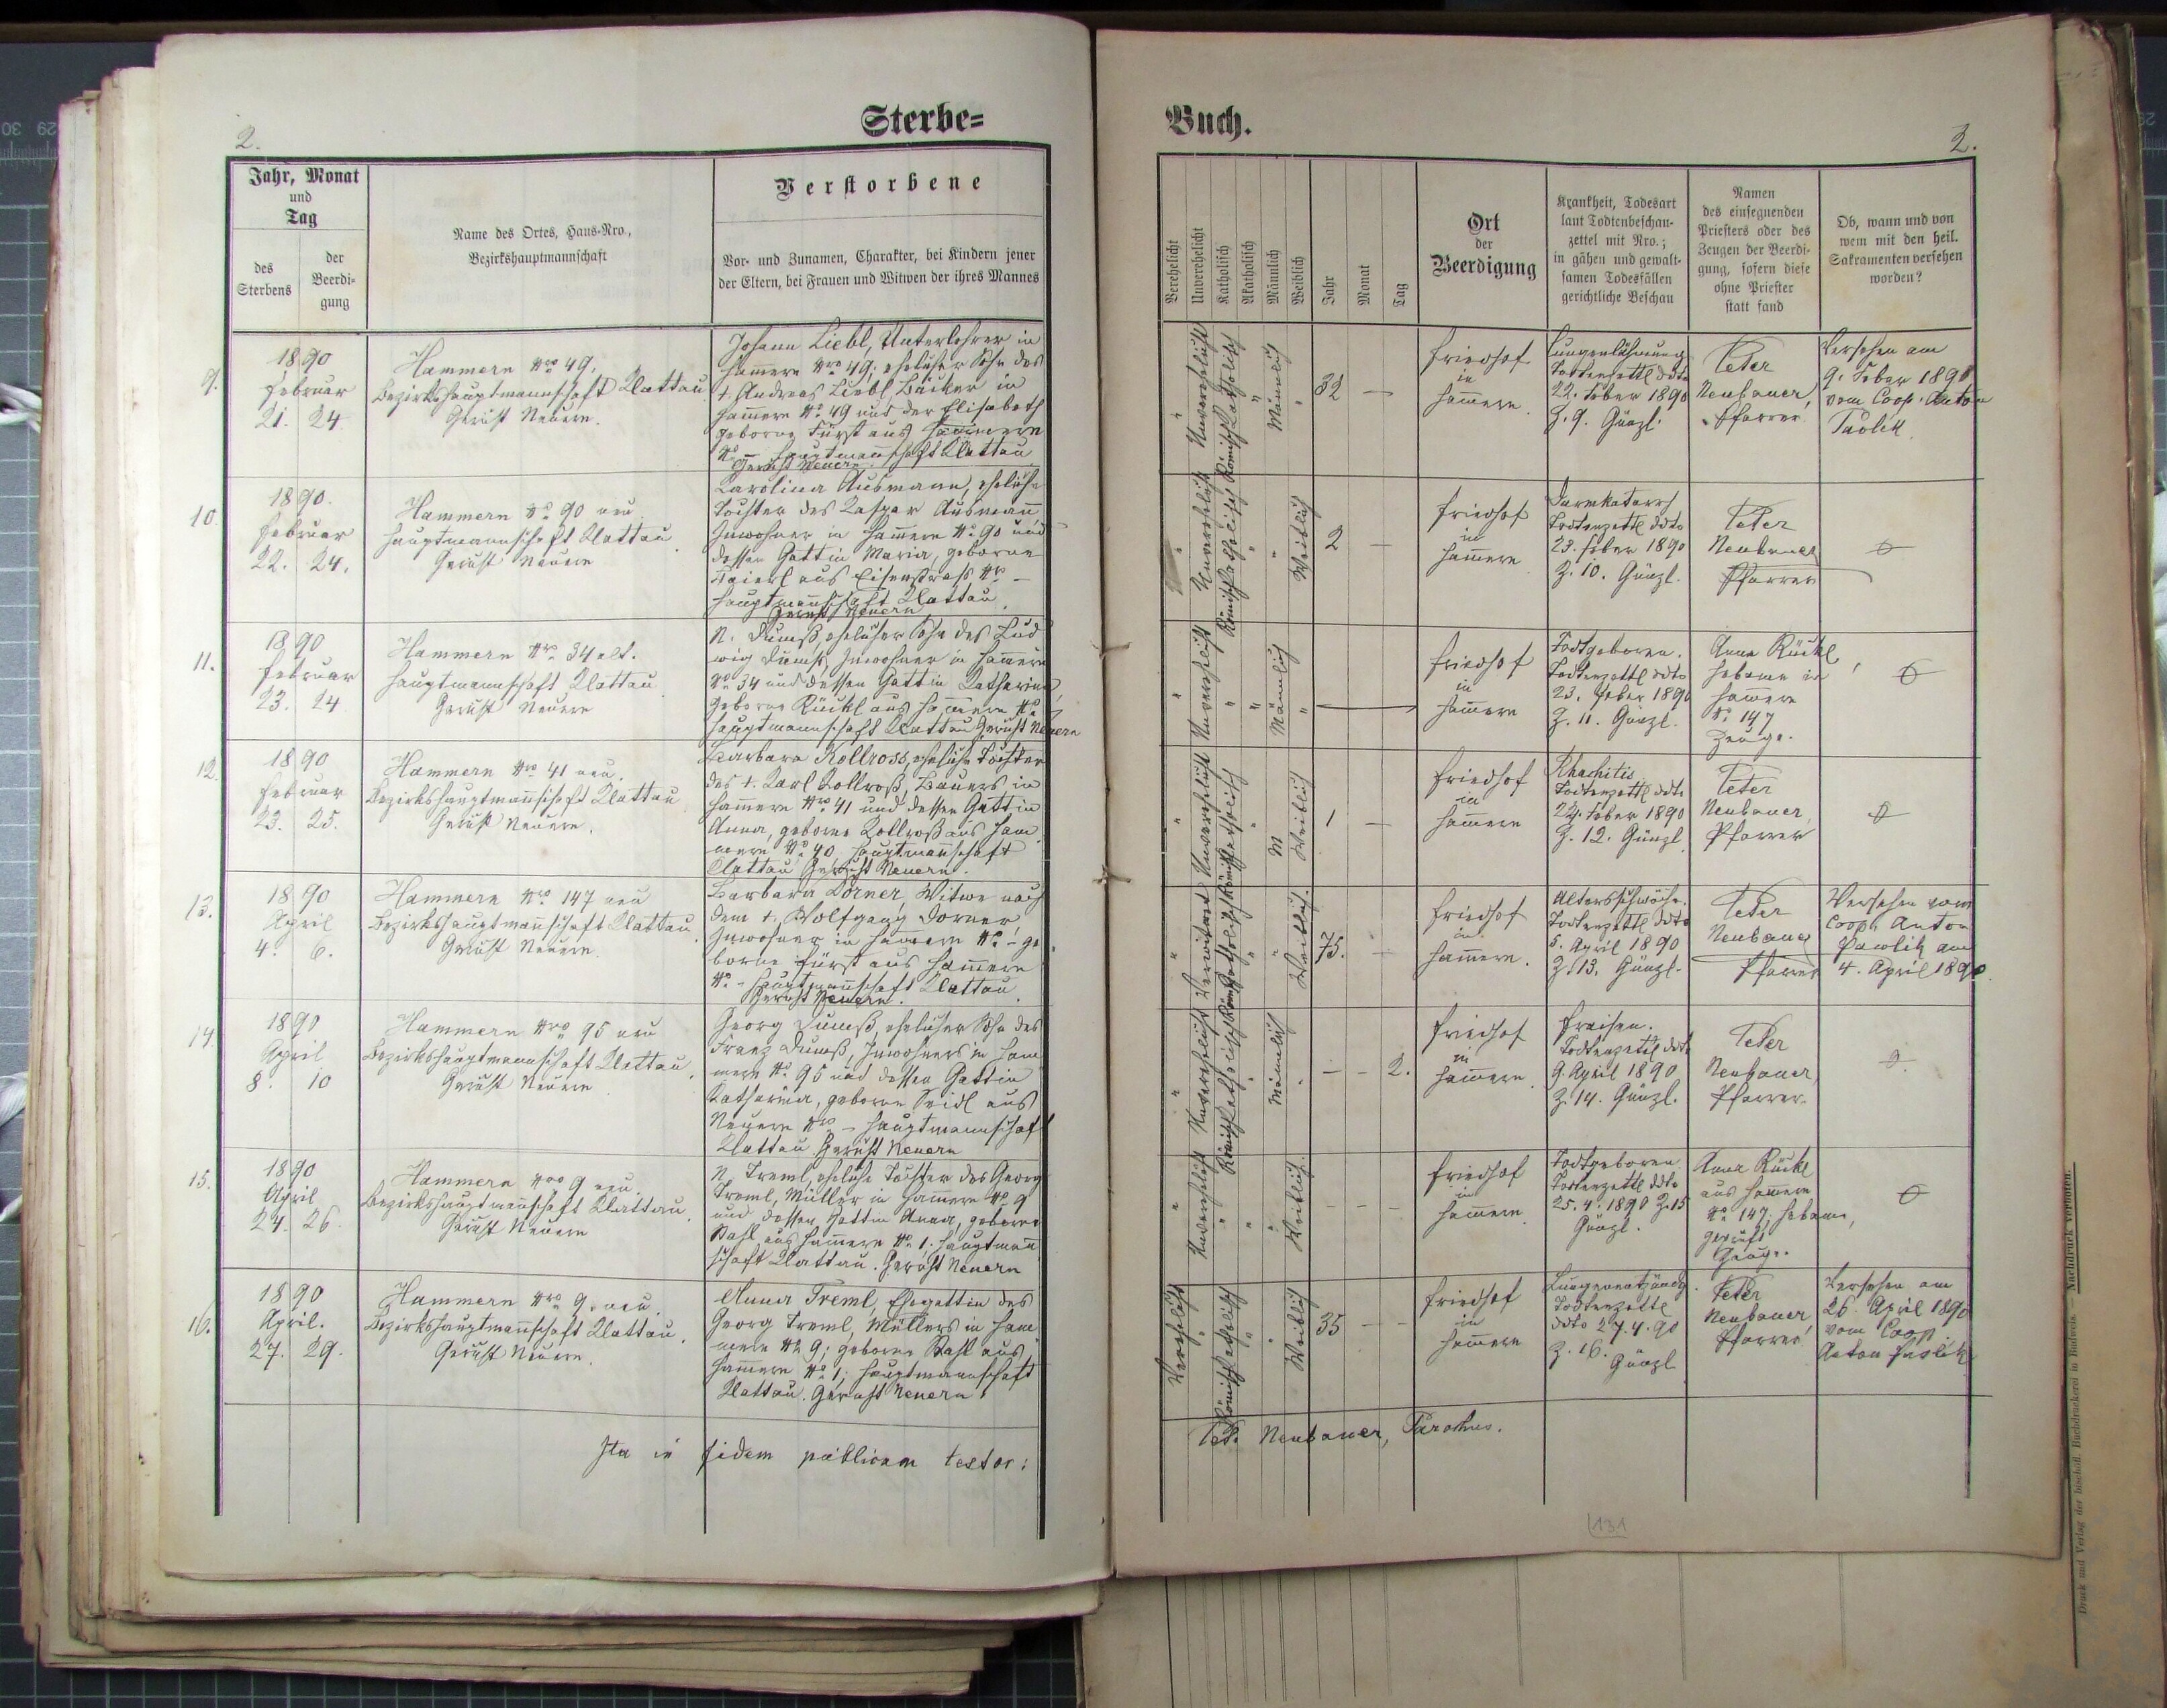 2.
Sterbe=
Jahr, Monat
und
Tag
des
Sterbens
der
Beerdi-
gung
Name des Ortes, Haus-Nro.,
Bezirkshauptmannschaft
Verstorbene
Vor- und Zunamen, Charakter, bei Kindern jener
der Eltern, bei Frauen und Witwen der ihres Mannes
9.
1890
Februar
21. 24.
Hammern Nro 49,
Bezirkshauptmannschaft Klattau
Gericht Neuern.
Johann Liebl, Unterlehrer in
Hammern Nro 49; ehelicher Sohn des
†. Andreas Liebl, Bäcker in
Hammern No 49 und der Elisabeth
geborne Fürst aus Hammern
No – Hauptmannschaft Klattau
Gericht Neuern.
10.
1890.
Februar
22. 24.
Hammern No 90 neu
Hauptmannschaft Klattau.
Gericht Neuern
Karolina Ausmann, eheliche
Tochter des Kaspar Ausmann
Inwohner in Hammern No 90 und
dessen Gattin Maria, geborne
aus Eisenstrass No –
Hauptmannschaft Klattau.
Gericht Neuern
11.
1890
Februar
23. 24
Hammern Nro 34 alt.
Hauptmannschaft Klattau
Gericht Neuern
N. Dumß, ehelicher Sohn des Lud
wig Dumß, Inwohner in Hammern
No 34 und dessen Gattin Katharina,
geborne Rückl aus Hammern No
Hauptmannschaft Klattau Gericht Neuern
12.
1890
Februar
23. 25.
Hammern Nro 41 neu.
Bezirkshauptmannschaft Klattau.
Gericht Neuern.
Barbara Kollross, eheliche Tochter
des †. Karl Kollroß, Bauers in
Hammern Nro 41 und dessen Gattin
Anna, geborne Kollroß aus Ham
mern No 40 Hauptmannschaft
Klattau Gericht Neuern.
13.
1890
April
4. 6.
Hammern Nro 147 neu
Bezirkshauptmannschaft Klattau.
Gericht Neuern.
Barbara Dorner, Witwe nach
dem †. Wolfgang Dorner
Inwohner in Hammern No – ge
borne Fürst aus Hammern
No – Hauptmannschaft Klattau.
Gericht Neuern.
14.
1890
April
8. 10
Hammern Nro 95 neu
Bezirkshauptmannschaft Klattau.
Gericht Neuern
Georg Dumß, ehelicher Sohn des
Franz Dumß, Inwohners in Ham
mern No 95 und dessen Gattin
Katharina, geborne Seidl aus
Neuern Nro – Hauptmannschaft
Klattau Gericht Neuern
15.
1890
April
24. 26.
Hammern Nro 9 neu.
Bezirkshauptmannschaft Klattau.
Gericht Neuern
N. Treml, eheliche Tochter des Georg
Treml, Müller in Hammern No 9
und dessen Gattin Anna, geborne
aus Hammern No 1. Hauptmann
schaft Klattau. Gericht Neuern
16.
1890
April.
27. 29.
Hammern Nro 9. neu.
Bezirkshauptmannschaft Klattau.
Gericht Neuern.
Anna Treml, Ehegattin des
Georg Treml, Müllers in Ham
mern No 9; geborne
Hammern No 1; Hauptmannschaft
Klattau. Gericht Neuern
Ita in fidem publicam testor:
Buch.
2.
Verehelicht
Unverehelicht
Katholisch
Akatholisch
Männlich
Weiblich
Jahr
Monat
Tag
Ort
der
Beerdigung
Krankheit, Todesart
laut Todtenbeschau-
zettel mit Nro.;
in gähen und gewalt-
samen Todesfällen
gerichtliche Beschau
Namen
des einsegnenden
Priesters oder des
Zeugen der Beerdi-
gung, sofern diese
ohne Priester
statt fand
Ob, wann und von
wem mit den heil.
Sakramenten versehen
worden?
" Unverehelicht Römisch Katholisch " Männlich " 32 –
Friedhof
in
Hammern.
Lungenlähmung
Todtenzettl ddto
22. Feber 1890
Z. 9. Günzl.
Peter
Neubauer,
Pfarrer
Versehen am
9. Feber 1890
vom Coop. Anton
" Unverehelicht Römisch Katholisch " " Weiblich 2 –
Friedhof
in
Hammern
Darmkatarrh
Todtenzettl ddto
23. Feber 1890
Z. 10. Günzl.
Peter
Neubauer
Pfarrer
" Unverehelicht " " Männlich " –
Friedhof
in
Hammern
Todtgeboren.
Todtenzettl ddto
23. Feber 1890
Z. 11. Günzl.
Anna Rückl,
Hebame in
Hammern
No 147
Zeuge.
" Unverehelicht Römisch Katholisch " M Weiblich 1 –
Friedhof
in
Hammern
Rhachitis
Todtenzettl ddto
Feber 1890
Z. 12. Günzl
Peter
Neubauer,
Pfarrer
" Verwitwet Römisch Katholisch " " Weiblich. 75. –
Friedhof
in
Hammern.
Altersschwäche.
Todtenzettl ddto
5. April 1890
Z. 13. Günzl.
Peter
Neubauer
Pfarrer
Versehen vom
Coop. Anton
Pawlik am
4. April 1890.
" Unverehelicht Römisch Katholisch " Männlich " – – 2.
Friedhof
in
Hammern.
Fraisen.
Todtenzettl ddto
9. April 1890
Z. 14. Günzl.
Peter
Neubauer,
Pfarrer
" Unverehelicht " " " Weiblich. – – –
Friedhof
in
Hammern.
Todtgeboren
Todtenzettl ddto
25. 4. 1890 Z. 15
Günzl.
Anna Rückl
aus Hammern
No 147; Hebame,
geprüft
Zeuge.
Verehelicht " Römisch Katholisch " " Weiblich 35 – –
Friedhof
in
Hammern
Lungenentzündg.
Todtenzettl
ddto 27. 4. 90
Z. 16.
Günzl
Peter
Neubauer
Pfarrer
Versehen am
26. April 1890
vom Coop.
Anton
Pet. Neubauer, Parochus.
131
Druck und Verlag der bischöfl. Buchdruckerei in Budweis. — Nachdruck verboten.